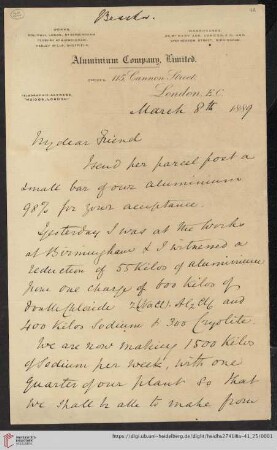 Aluminium Company, Limited.
115 Cannon Street,
London, E.C.
March 8th 1889
My dear Friend
I send per parcel post a
small bar of our aluminium
98% for your acceptance.
Yesterday I was at the Works
at Birmingham & I witnessed a
reduction of 55 kilos of aluminium
from one charge of 600 kilos of
Double Chloride 2(NaCl) Al2Cl6 and
400 kilos Sodium & 300 Cryolite.
We are now making 1500 kilos
of Sodium per week, with one
quarter of our plant so that
we shall be able to make from